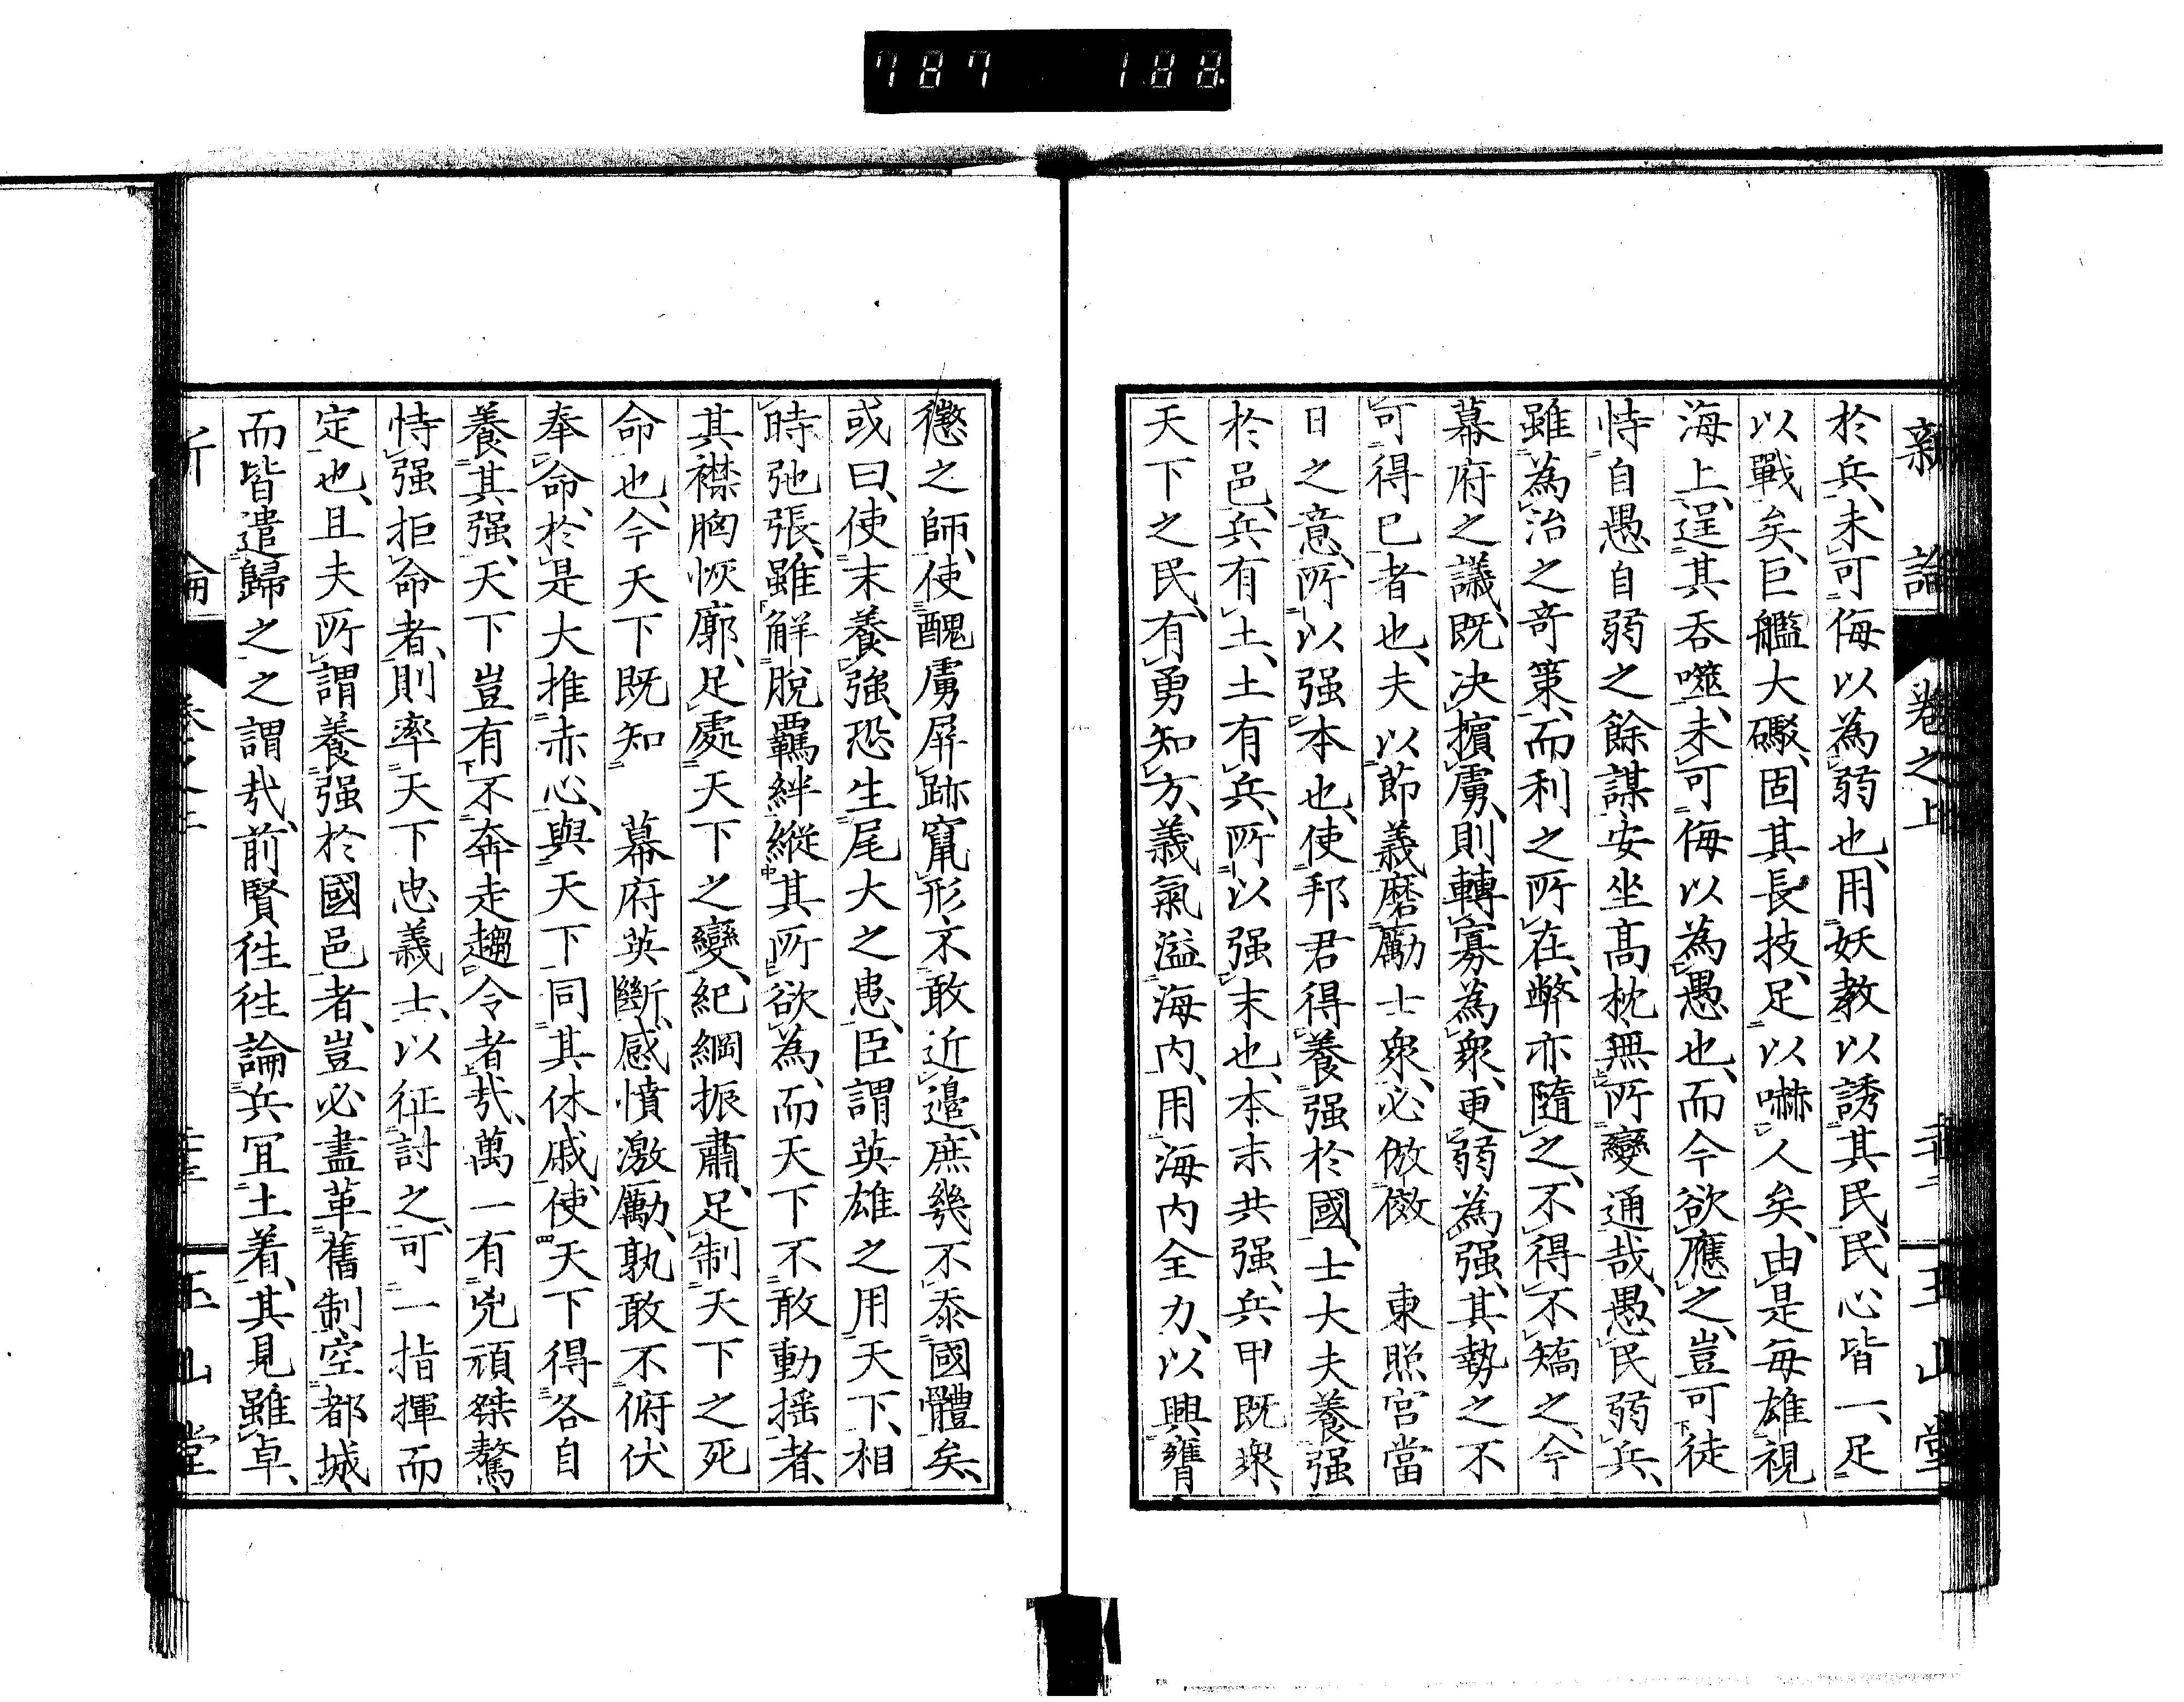 787 188
新論 卷之上 玉山堂
於兵、未可侮以為弱也、用妖教以誘其民、民心皆一、足
以戰矣、巨艦大礮、固其長技、足以嚇人矣、由是每雄視
海上、逞其吞噬、未可侮以為愚也、而今欲應之、豈可徒
恃自愚自弱之餘謀、安坐高枕、無所變通哉、愚民弱兵、
雖為治之奇策、而利之所在、弊亦隨之、不得不矯之、今
幕府之議、既決擯虜、則轉寡為衆、更弱為强、其勢之不
可得已者也、夫以節義磨勵士衆、必倣傚　東照宮當
日之意、所以强本也、使邦君得養强於國、士大夫養强
於邑、兵有土、土有兵、所以强末也、本末共强、兵甲既衆、
天下之民、有勇知方、義氣溢海内、用海内全力、以興膺
懲之師、使醜虜屏跡竄形不敢近邊、庶幾不忝國體矣、
或曰、使末養強、恐生尾大之患、臣謂英雄之用天下、相
時弛張、雖解脫羈絆縱其所欲為、而天下不敢動搖者、
其襟胸恢廓、足處天下之變、紀綱振肅、足制天下之死
命也、今天下既知　幕府英斷、感憤激勵、孰敢不俯伏
奉命、於是大推赤心、與天下同其休戚、使天下得各自
養其强、天下豈有不奔走趨令者哉、萬一有兇頑桀驁
恃强拒命者、則率天下忠義士、以征討之、可一指揮而
定也、且夫所謂養强於國邑者、豈必盡革舊制空都城、
而皆遣歸之之謂哉、前賢往往論兵宜土着、其見雖卓、
玉山堂